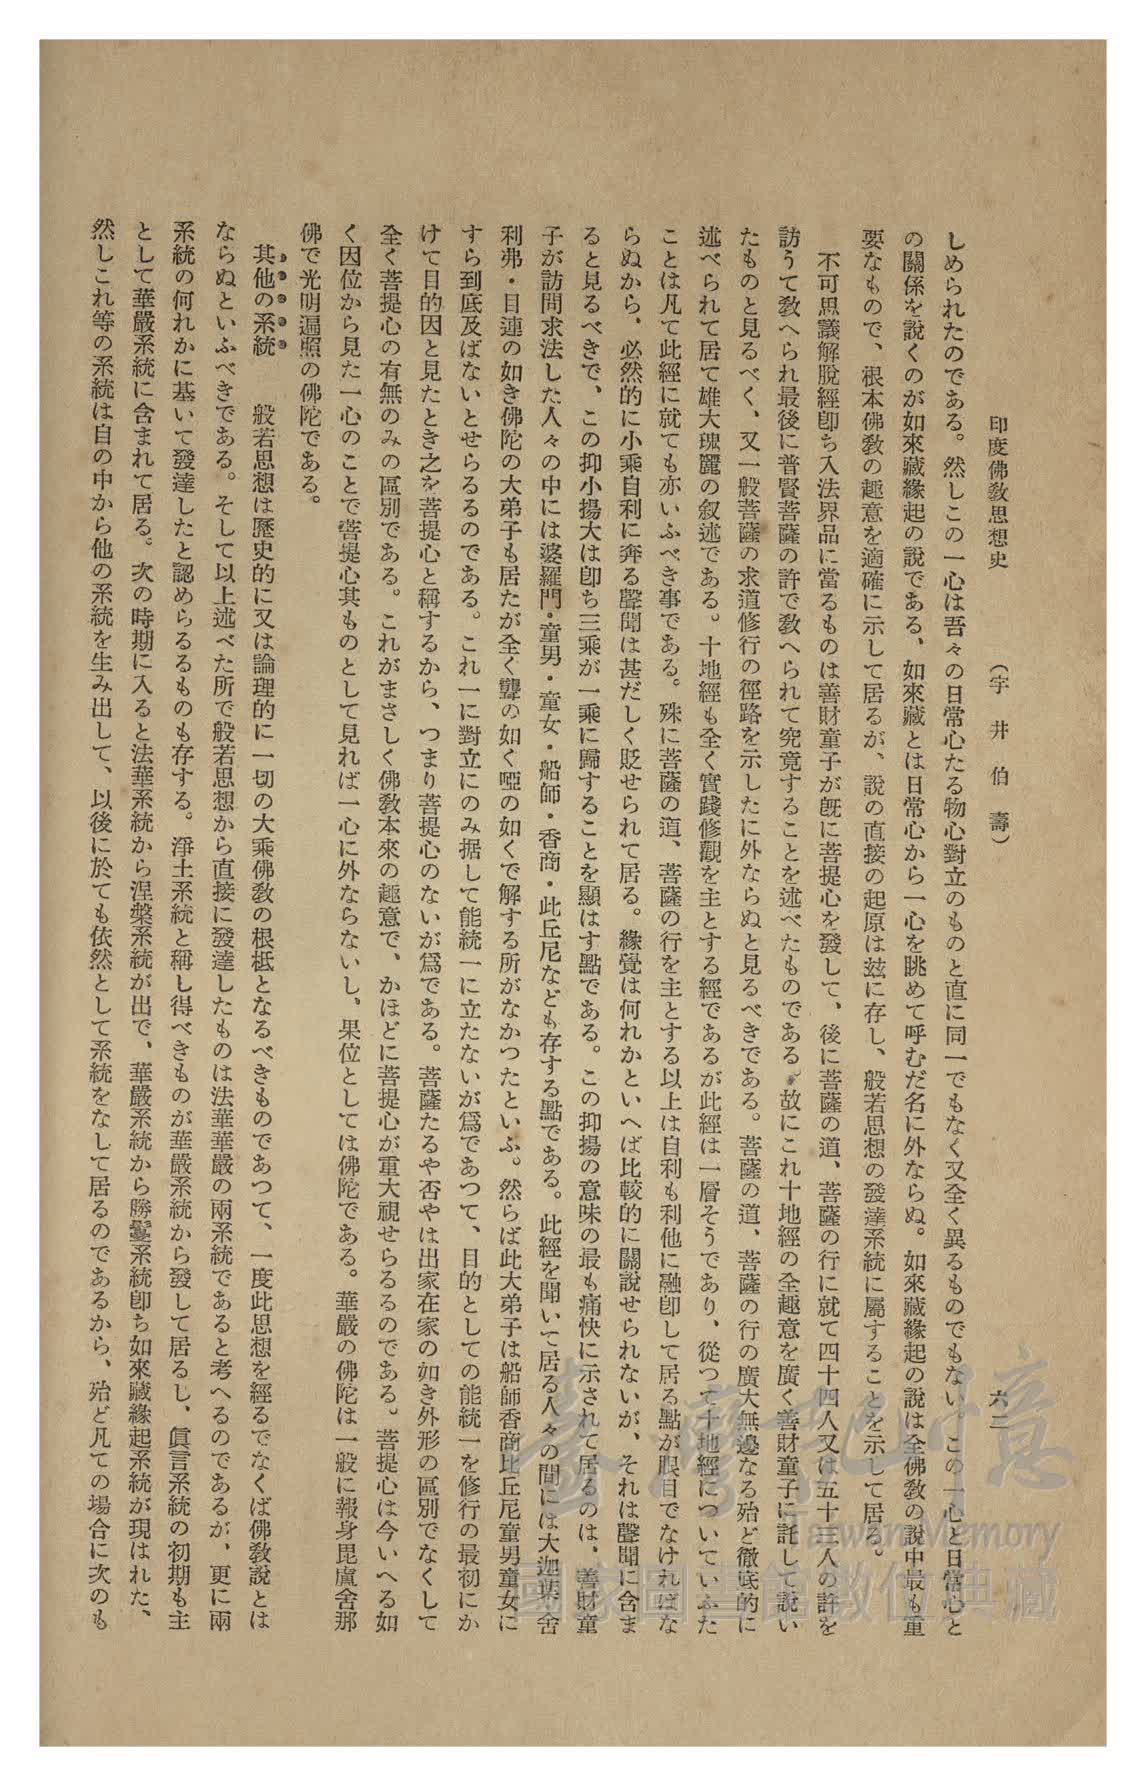 印度佛敎思想史　（宇井伯壽）　六二
しめられたのである。然しこの一心は吾々の日常心たる物心對立のものと直に同一でもなく又全く異るものでもない。この一心と日常心と
の關係を說くのが如來藏緣起の說である、如來藏とは日常心から一心を眺めて呼むだ名に外ならぬ。如來藏緣起の說は全佛敎の說中最も重
要なもので、根本佛敎の趣意を適確に示して居るが、說の直接の起原は玆に存し、般若思想の發達系統に屬することを示して居る。
不可思議解脫經卽ち入法界品に當るものは善財童子が旣に菩提心を發して、後に菩薩の道、菩薩の行に就て四十四人又は五十三人の許を
訪うて敎へられ最後に普賢菩薩の許で敎へられて究竟することを述べたものである。故にこれ十地經の全趣意を廣く善財童子に託して說い
たものと見るべく、又一般菩薩の求道修行の徑路を示したに外ならぬと見るべきである。菩薩の道、菩薩の行の廣大無邊なる殆ど徹底的に
述べられて居て雄大瑰麗の叙述である。十地經も全く實踐修觀を主とする經であるが此經は一層そうであり、從つて十地經についていふた
ことは凡て此經に就ても亦いふべき事である。殊に菩薩の道、菩薩の行を主とする以上は自利も利他に融卽して居る點が眼目でなければな
らぬから、必然的に小乘自利に奔る聲聞は甚だしく貶せられて居る。緣覺は何れかといへば比較的に關說せられないが、それは聲聞に含ま
ると見るべきで、この抑小揚大は卽ち三乘が一乘に歸することを顯はす點である。この抑揚の意味の最も痛快に示されて居るのは、善財童
子が訪問求法した人々の中には婆羅門・童男・童女・船師・香商・此丘尼なども存する點である。此經を聞いて居る人々の間には大迦葉・舍
利弗・目連の如き佛陀の大弟子も居たが全く聾の如く啞の如くで解する所がなかつたといふ。然らば此大弟子は船師香商比丘尼童男童女に
すら到底及ばないとせらるるのである。これ一に對立にのみ据して能統一に立たないが爲であつて、目的としての能統一を修行の最初にか
けて目的因と見たとき之を菩提心と稱するから、つまり菩提心のないが爲である。菩薩たるや否やは出家在家の如き外形の區別でなくして
全く菩提心の有無のみの區別である。これがまさしく佛敎本來の趣意で、かほどに菩提心が重大視せらるるのである。菩提心は今いへる如
く因位から見た一心のことで菩提心其ものとして見れば一心に外ならないし、果位としては佛陀である。華嚴の佛陀は一般に報身毘盧舍那
佛で光明遍照の佛陀である。
其他の系統　般若思想は歷史的に又は論理的に一切の大乘佛敎の根柢となるべきものであつて、一度此思想を經るでなくば佛敎說とは
ならぬといふべきである。そして以上述べた所で般若思想から直接に發達したものは法華華嚴の兩系統であると考へるのであるが、更に兩
系統の何れかに基いて發達したと認めらるるものも存する。淨土系統と稱し得べきものが華嚴系統から發して居るし、眞言系統の初期も主
として華嚴系統に含まれて居る。次の時期に入ると法華系統から涅槃系統が出で、華嚴系統から勝鬘系統卽ち如來藏緣起系統が現はれた、
然しこれ等の系統は自の中から他の系統を生み出して、以後に於ても依然として系統をなして居るのであるから、殆ど凡ての場合に次のも
臺灣記憶
Taiwan Memory
國家圖書館數位典藏